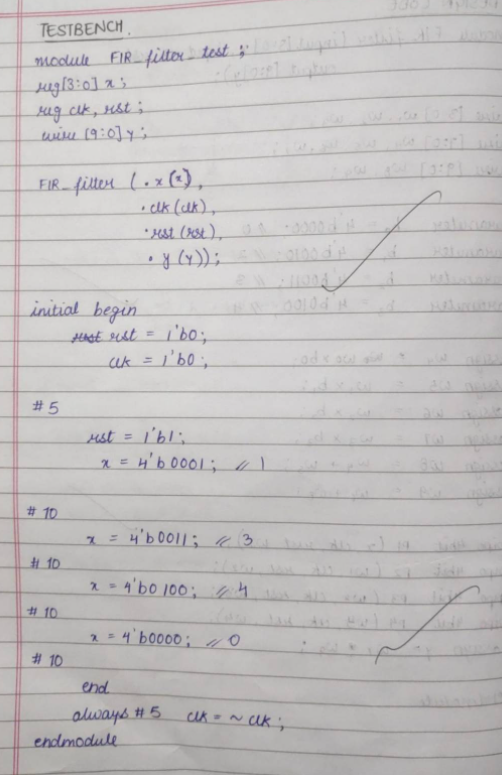 TESTBENCH.
module FIR_filter_test ;
reg[3:0] x ;
reg clk, rst ;
wire [9:0] y ;
FIR_filter ( .x(x),
.clk(clk),
.rst(rst),
.y(y));
initial begin
rst = 1'b0;
clk = 1'b0;
#5
rst = 1'b1;
x = 4'b0001; // 1
#10
x = 4'b0011; // 3
#10
x = 4'b0100; // 4
#10
x = 4'b0000; // 0
#10
end
always #5 clk = ~clk ;
endmodule